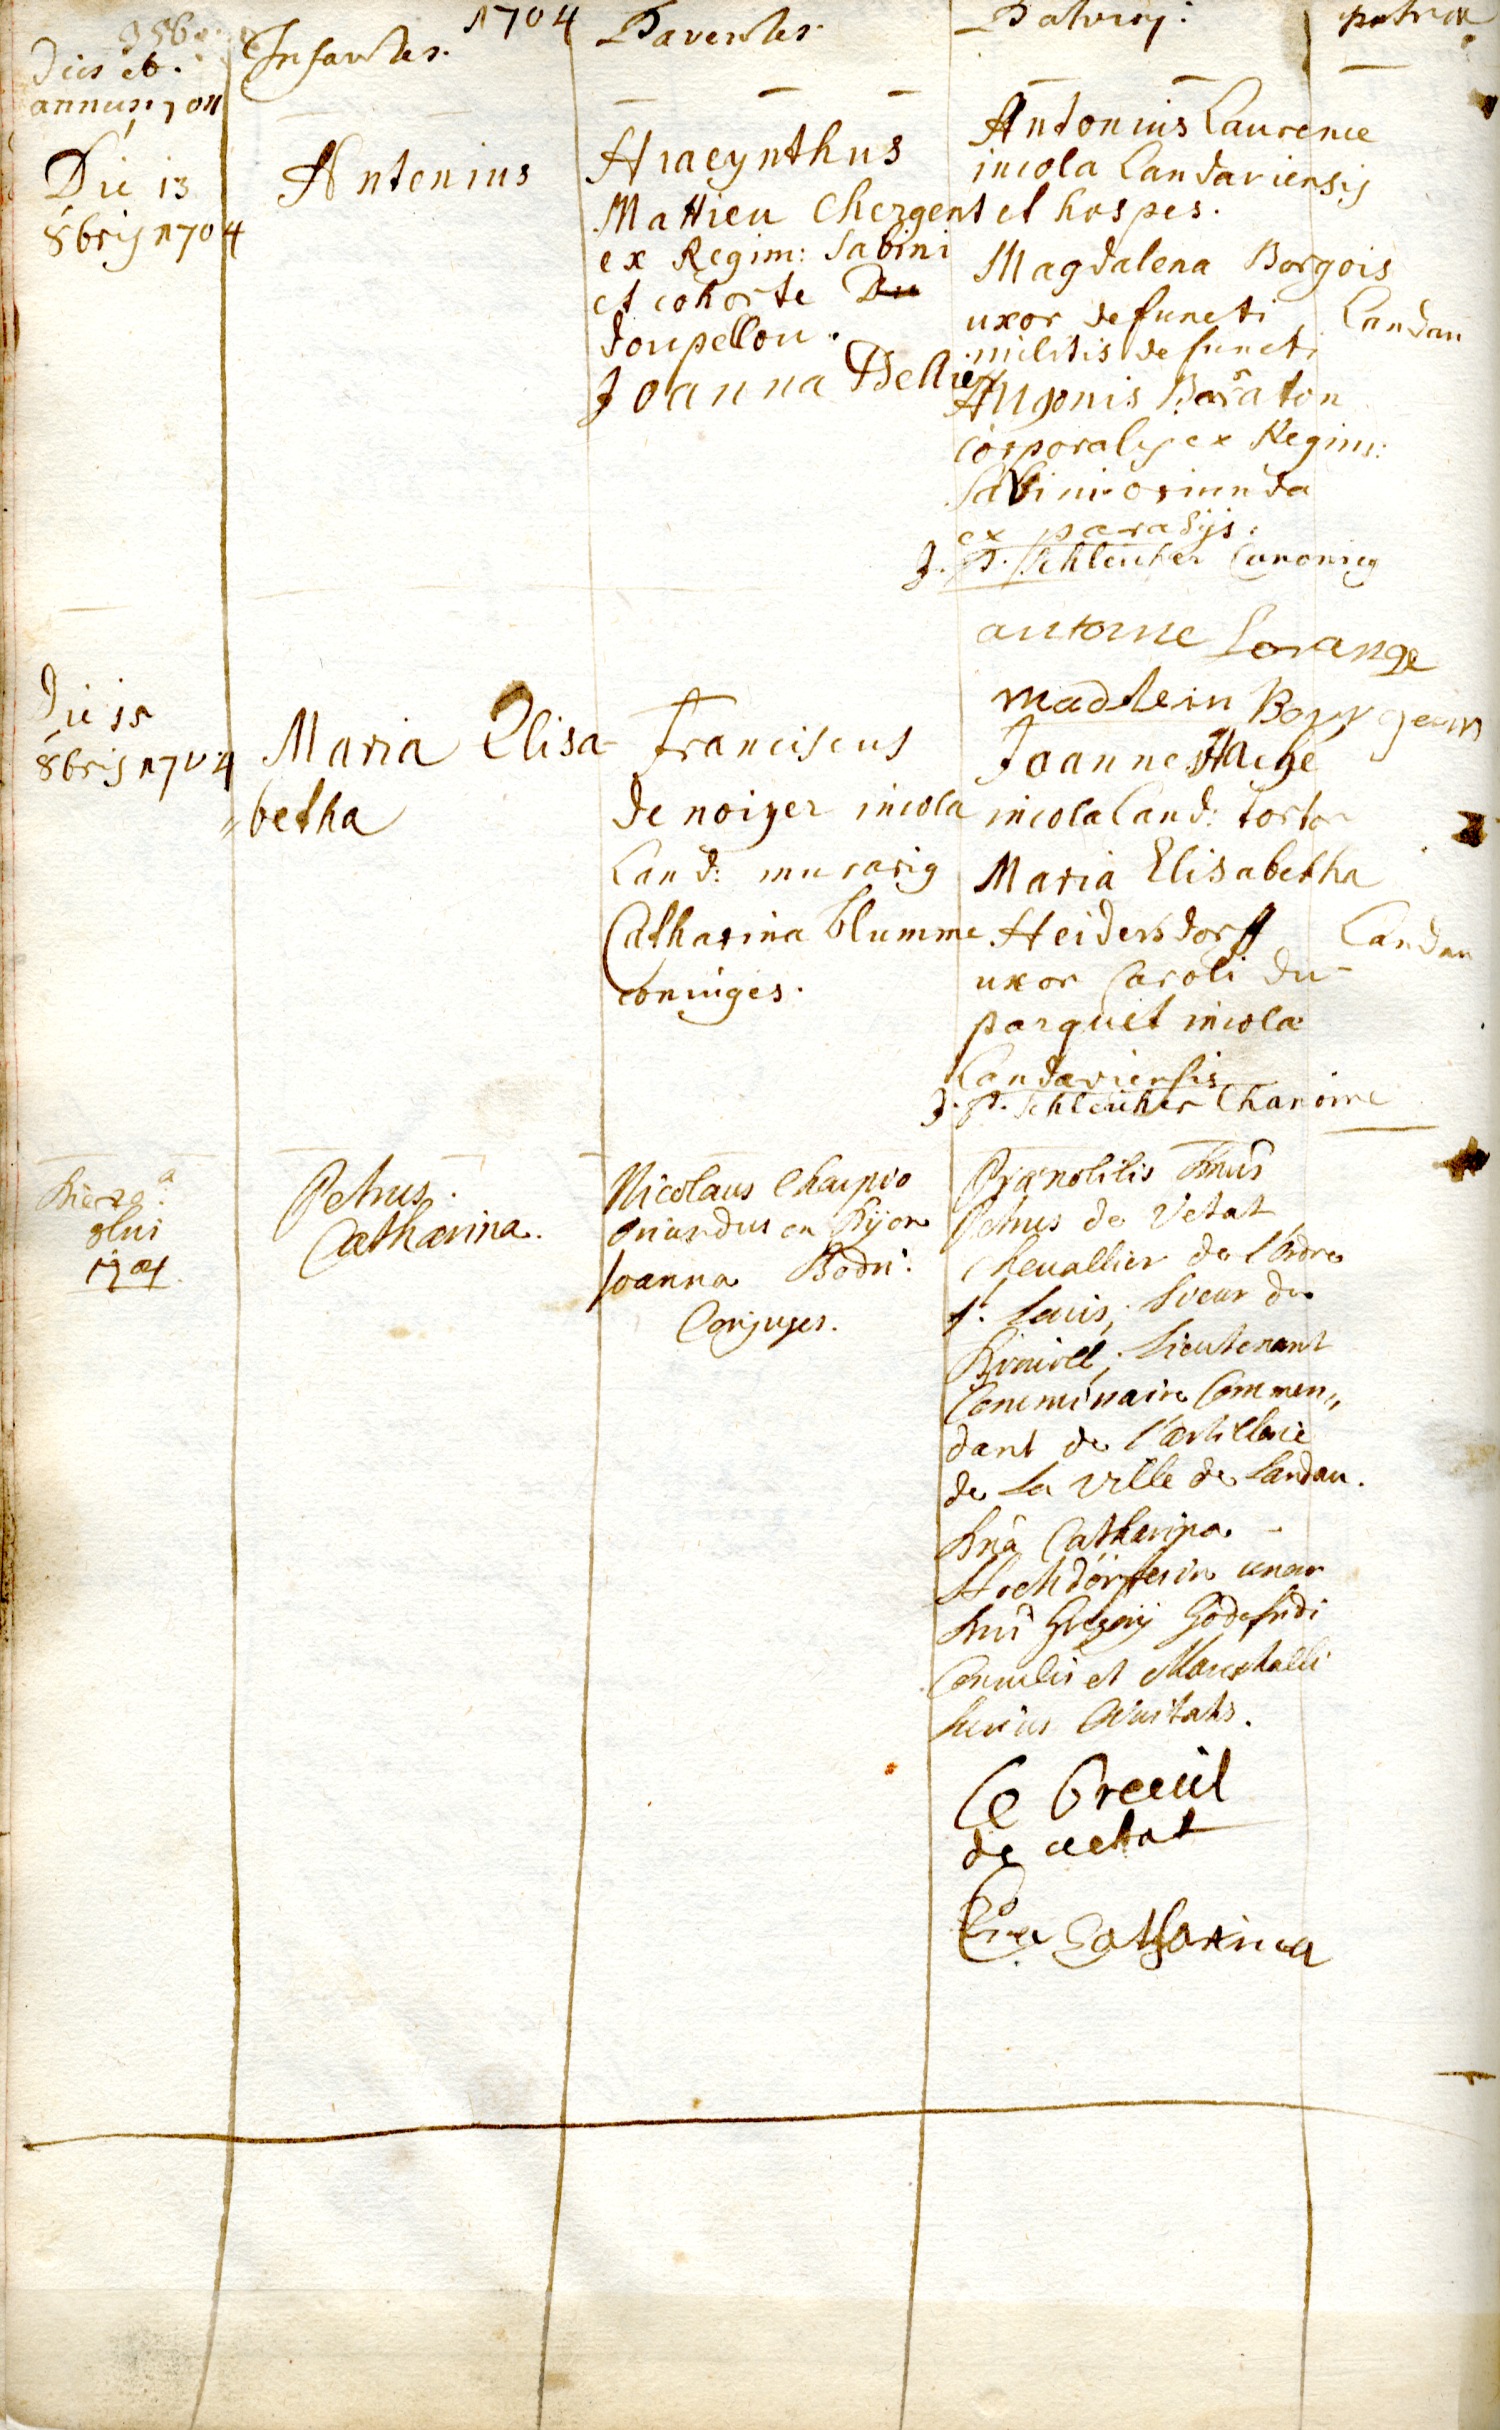 1704
Dies et
annus 1704
Infantes.
Parentes.
Patrini:
patria
Die 13
8bris 1704
Antonius
Hiacynthus
Mattieu Chergent
ex Regim: Sabini
et cohorte Du
doupellou.
Joanna Bellier
Antonius Laurence
incola Landaviensis
et hospes.
Magdalena Borgois
uxor defuncti
militis defuncti
Hugonis Baraton
Corporalis ex Regim:
Sabini oriunda
ex parasijs.
J. P. Schleicher Canonicq
Landau
antoine Lorange
madlein Bourgeois
Die 15
8bris 1704
Maria Elisa-
betha
Franciscus
de noiger incola
Land: murariq
Catharina blumme
coniuges.
Joannes Haché
incola Land: tortor
Maria Elisabetha
Heidersdorff
uxor Caroli du-
parquet incola
Landaviensis
J. P. Schleicher Chanoine
Landau
Die 20a
8bris
1704
Petrus.
Catharina.
Nicolaus Champio
oriundus en Dijon
Joanna Bodri.
Conjuges.
Prænobilis Dnus
Petrus de Vetat
Chevallier de l'ordre
St. Louis, Sieur de
Breuill, Lieutenant
Commissaire Commen„
dant de l'artillerie
de La ville de Landau.
Dna Catharina
Hochdörfferin uxor
Dni Gregorij Godefridi
Consulis et Mareschalli
huius Civitatis.
Le Breuil
de vetat
Eva Catharina